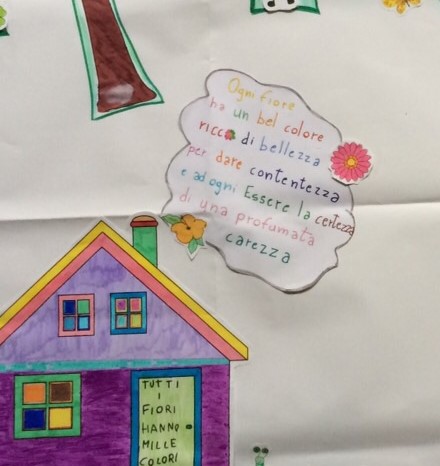 Ogni fiore
ha un bel colore
ricco di bellezza
per dare contentezza
e ad ogni Essere la certezza
di una profumata
carezza
TUTTI
I
FIORI
HANNO
MILLE
COLORI